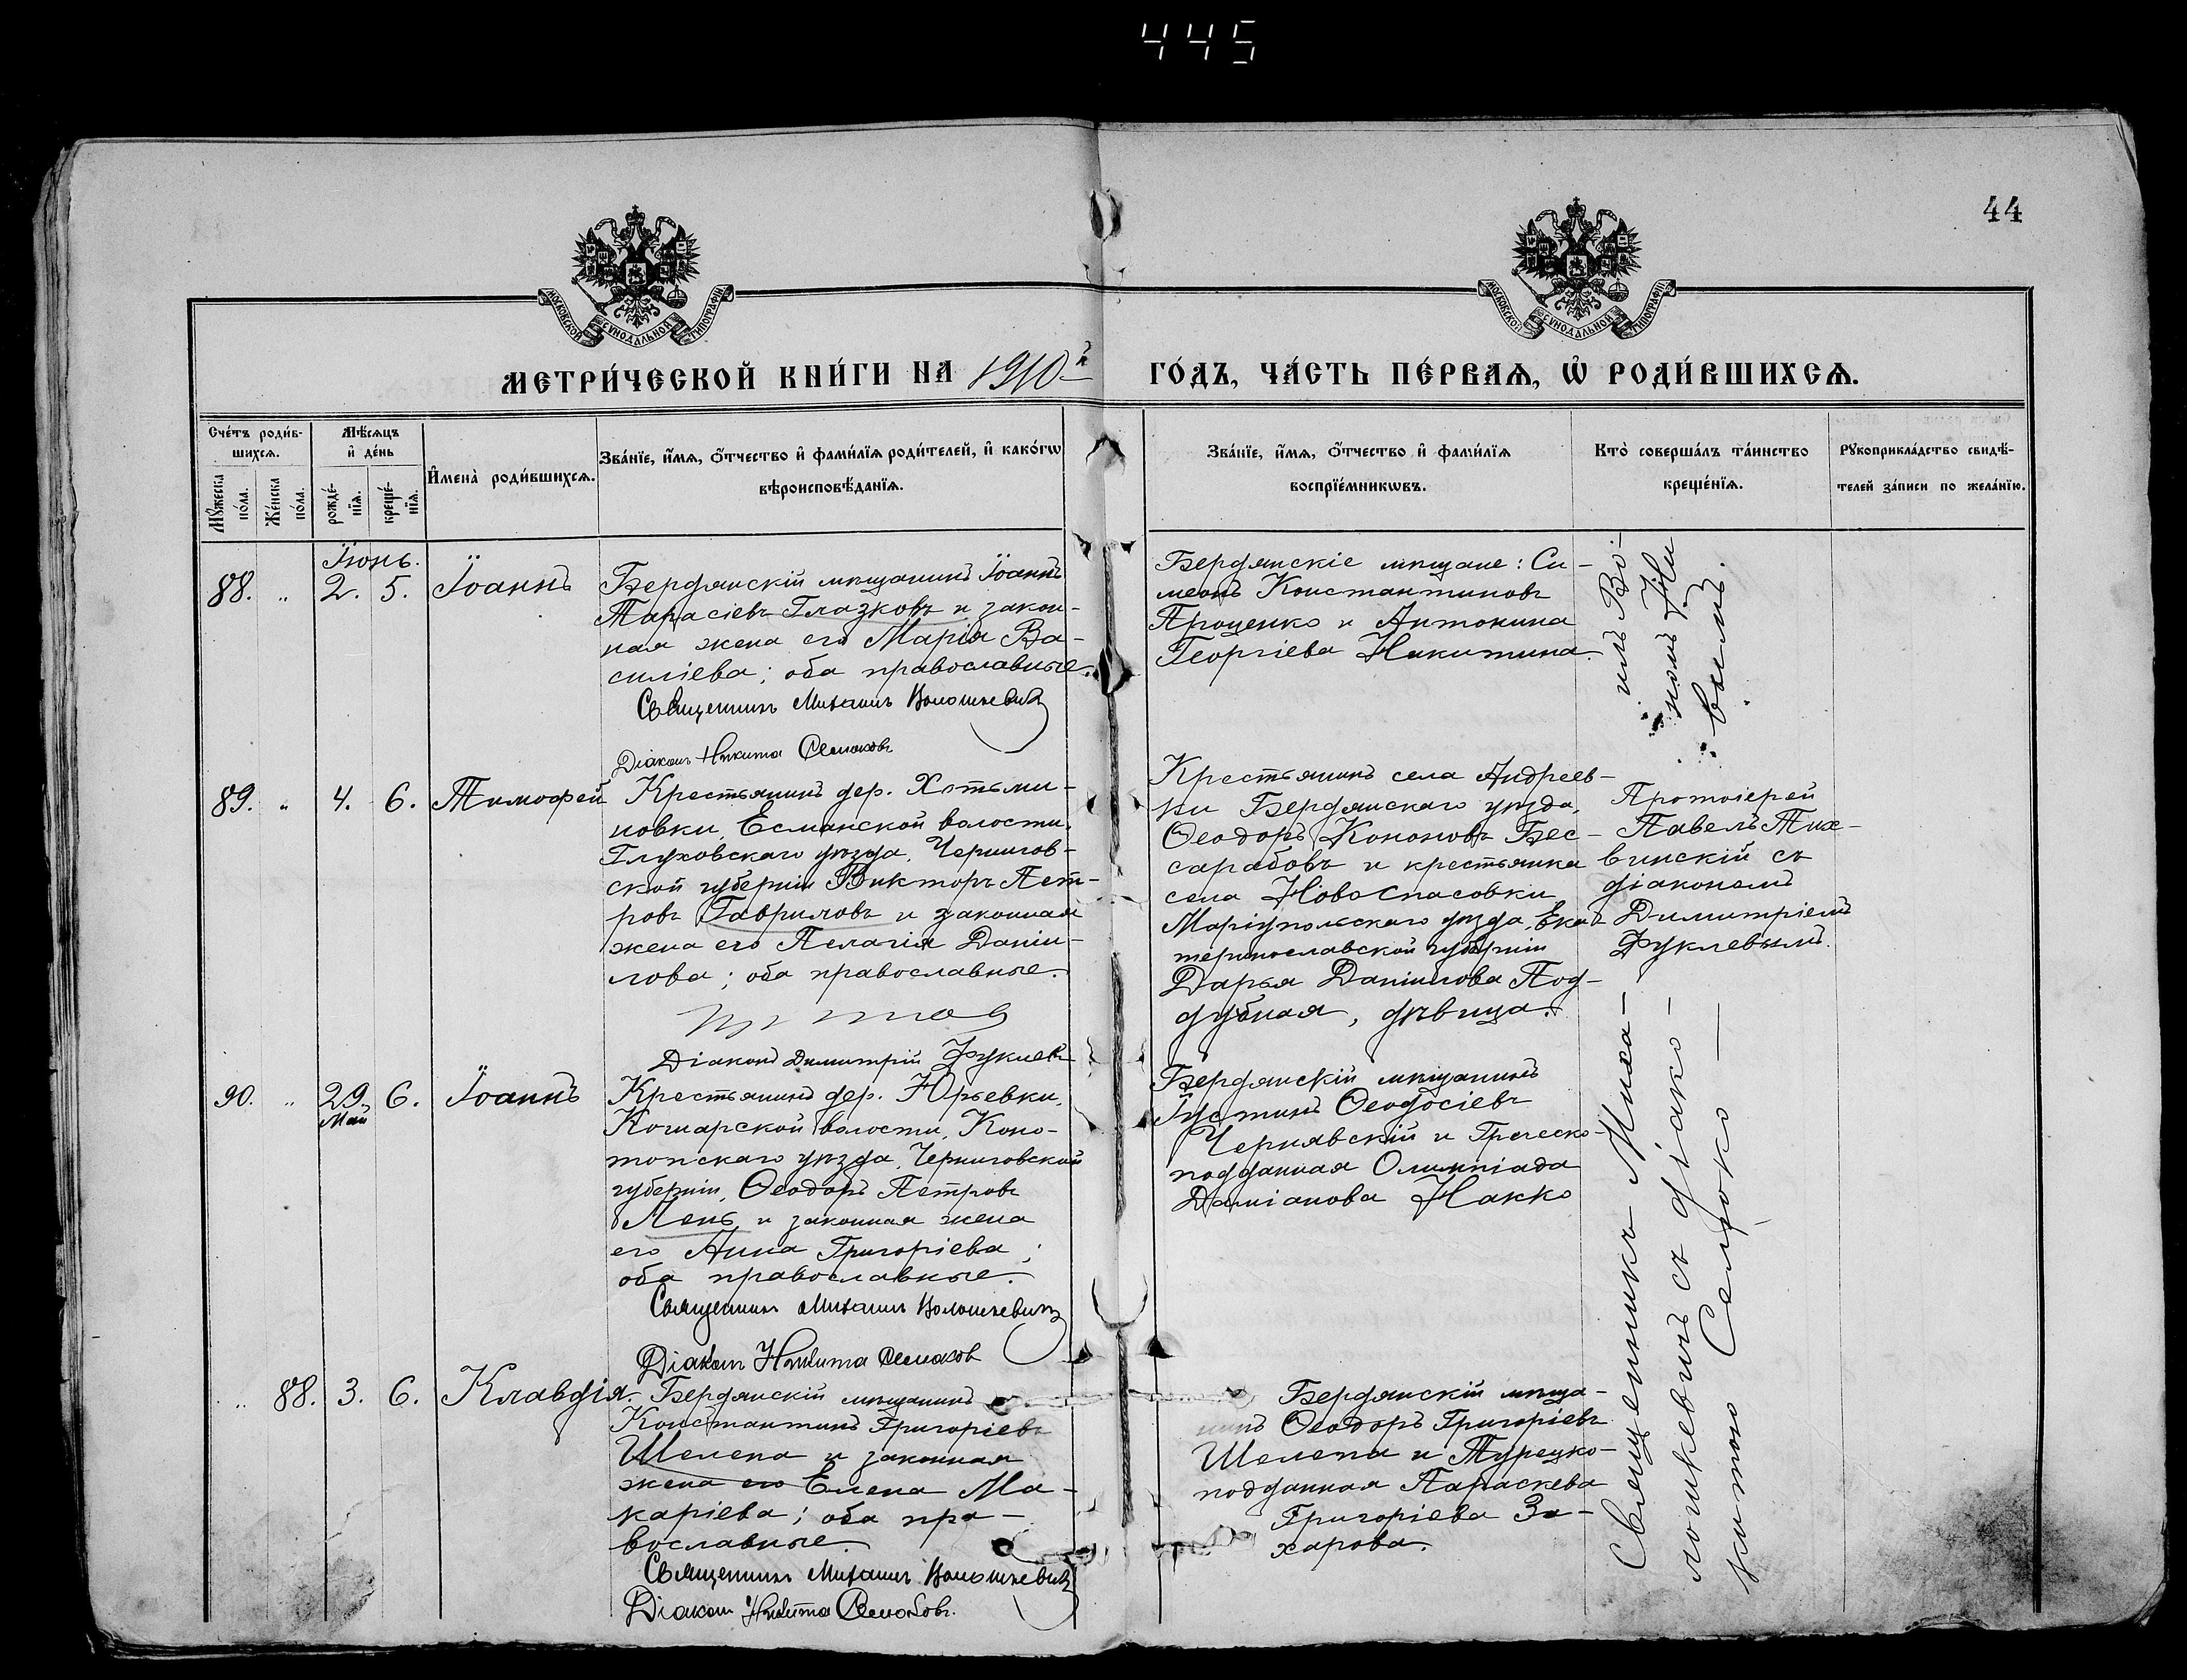 445
44
МОСКОВСКОЙ СУНОДАЛЬНОЙ ТИПОГРАФІИ
МОСКОВСКОЙ СУНОДАЛЬНОЙ ТИПОГРАФІИ
МЕТРИ́ЧЕСКОЙ КНИ́ГИ НА 1910-й ГО́ДЪ, ЧА́СТЬ ПЕ́РВАѦ, Ѡ҆ РОДИ́ВШИХСѦ.
Сче́тъ роди́в-
шихсѧ.
Мꙋ́жеска
по́ла.
Же́нска
по́ла.
Мѣ́сѧцъ
и҆ де́нь
рожде́-
нїѧ.
креще́-
нїѧ.
И҆мена̀ роди́вшихсѧ.
Зва́нїе, и҆́мѧ, ѻ҆́тчество и҆ фами́лїѧ роди́телей, и҆ како́гѡ
вѣроисповѣ́данїѧ.
Зва́нїе, и҆́мѧ, ѻ҆́тчество и҆ фами́лїѧ
воспрїе́мникѡвъ.
Кто̀ соверша́лъ та́инство
креще́нїѧ.
Рꙋкоприкла́дство свидѣ́-
телей за́писи по жела́нїю.
Іюнь.
88. „ 2. 5. Іоаннъ
Бердянскій мѣщанинъ Іоаннъ
Тарасіевъ Глазковъ и закон-
ная жена его Марія Ва-
силіева; оба православные.
Священникъ Михаилъ Волошкевичъ
Діаконъ Никита Семоковъ
Бердянскіе мѣщане: Си-
меонъ Константиновъ
Проценко и Антонина
Георгіева Никитина.
89. „ 4. 6. Тимофей
Крестьянинъ дер. Хотьми-
новки, Есманской волости,
Глуховскаго уѣзда, Чернигов-
ской губерніи Викторъ Пет-
ровъ Гавриловъ и законная
жена его Пелагія Даніи-
лова; оба православные.
Діаконъ Димитрій Фуклевъ
Крестьянинъ села Андреев-
ки Бердянскаго уѣзда,
Ѳеодоръ Кононовъ Бес-
сарабовъ и крестьянка
села Новоспасовки
Маріупольскаго уѣзда, Ека-
теринославской губерніи
Дарья Даніилова Под-
дубная, дѣвица.
Протоіерей
Павелъ Тих-
винскій съ
діакономъ
Димитріемъ
Фуклевымъ.
90. „ 29. Май 6. Іоаннъ
Крестьянинъ дер. Юрьевки,
Кошарской волости, Коно-
топскаго уѣзда, Черниговской
губерніи, Ѳеодоръ Петровъ
Лень и законная жена
его Анна Григоріева;
оба православные.
Священникъ Михаилъ Волошкевичъ
Діаконъ Никита Семоковъ
Бердянскій мѣщанинъ
Іустинъ Ѳеодосіевъ
Чернявскій и Греческо-
подданная Олимпіада
Даміанова Накко
„ 88. 3. 6. Клавдія.
Бердянскій мѣщанинъ
Константинъ Григоріевъ
Шелепа и законная
жена его Елена Ма-
каріева; оба пра-
вославные.
Священникъ Михаилъ Волошкевичъ
Діаконъ Никита Семоковъ.
Бердянскій мѣща-
нинъ Ѳеодоръ Григоріевъ
Шелепа и Турецко-
подданная Параскева
Григоріева За-
харова.
Священникъ Миха-
илъ Во-
лошкевичъ съ діако-
номъ Ни
китою Семоко-
вымъ.